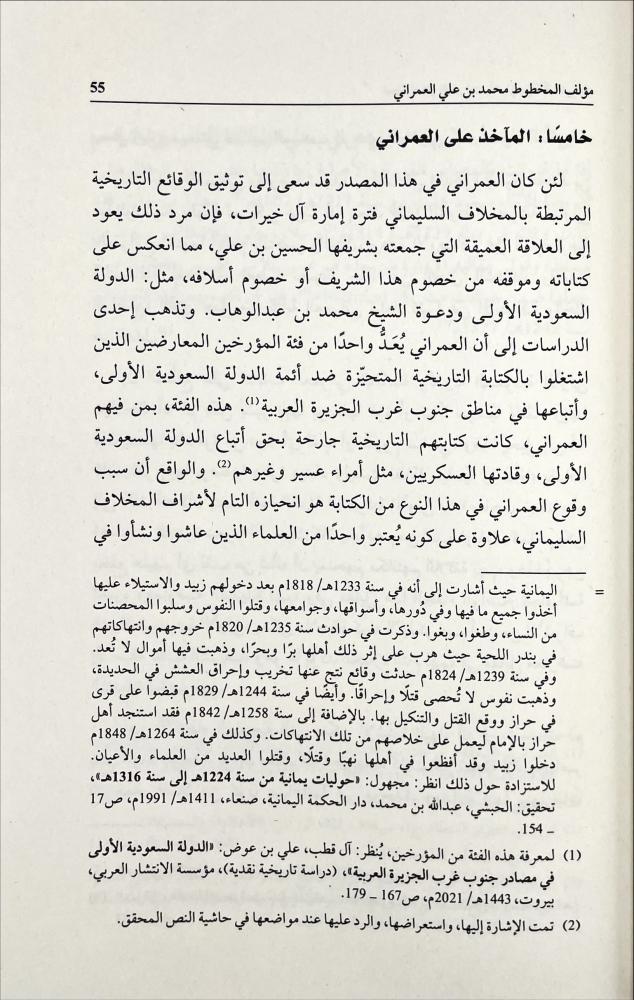 مؤلف المخطوط محمد بن علي العمراني
55
خامسًا: المآخذ على العمراني
لئن كان العمراني في هذا المصدر قد سعى إلى توثيق الوقائع التاريخية
المرتبطة بالمخلاف السليماني فترة إمارة آل خيرات، فإن مرد ذلك يعود
إلى العلاقة العميقة التي جمعته بشريفها الحسين بن علي، مما انعكس على
كتاباته وموقفه من خصوم هذا الشريف أو خصوم أسلافه، مثل: الدولة
السعودية الأولى ودعوة الشيخ محمد بن عبدالوهاب. وتذهب إحدى
الدراسات إلى أن العمراني يُعَدُّ واحدًا من فئة المؤرخين المعارضين الذين
اشتغلوا بالكتابة التاريخية المتحيّزة ضد أئمة الدولة السعودية الأولى،
وأتباعها في مناطق جنوب غرب الجزيرة العربية(1). هذه الفئة، بمن فيهم
العمراني، كانت كتابتهم التاريخية جارحة بحق أتباع الدولة السعودية
الأولى، وقادتها العسكريين، مثل أمراء عسير وغيرهم(2). والواقع أن سبب
وقوع العمراني في هذا النوع من الكتابة هو انحيازه التام لأشراف المخلاف
السليماني، علاوة على كونه يُعتبر واحدًا من العلماء الذين عاشوا ونشأوا في
= اليمانية حيث أشارت إلى أنه في سنة 1233هـ/ 1818م بعد دخولهم زبيد والاستيلاء عليها
أخذوا جميع ما فيها وفي دُورها، وأسواقها، وجوامعها، وقتلوا النفوس وسلبوا المحصنات
من النساء، وطغوا، وبغوا. وذكرت في حوادث سنة 1235هـ/ 1820م خروجهم وانتهاكاتهم
في بندر اللحية حيث هرب على إثر ذلك أهلها برًا وبحرًا، وذهبت فيها أموال لا تُعد.
وفي سنة 1239هـ/ 1824م حدثت وقائع نتج عنها تخريب وإحراق العشش في الحديدة،
وذهبت نفوس لا تُحصى قتلًا وإحراقًا. وأيضًا في سنة 1244هـ/ 1829م قبضوا على قرى
في حراز ووقع القتل والتنكيل بها. بالإضافة إلى سنة 1258هـ/ 1842م فقد استنجد أهل
حراز بالإمام ليعمل على خلاصهم من تلك الانتهاكات. وكذلك في سنة 1264هـ/ 1848م
دخلوا زبيد وقد أفظعوا في أهلها نهبًا وقتلًا، وقتلوا العديد من العلماء والأعيان.
للاستزادة حول ذلك انظر: مجهول: «حوليات يمانية من سنة 1224هـ إلى سنة 1316هـ»،
تحقيق: الحبشي، عبدالله بن محمد، دار الحكمة اليمانية، صنعاء، 1411هـ/ 1991م، ص17
ـ 154.
(1) لمعرفة هذه الفئة من المؤرخين، يُنظر: آل قطب، علي بن عوض: «الدولة السعودية الأولى
في مصادر جنوب غرب الجزيرة العربية»، (دراسة تاريخية نقدية)، مؤسسة الانتشار العربي،
بيروت، 1443هـ/ 2021م، ص167 ـ 179.
(2) تمت الإشارة إليها، واستعراضها، والرد عليها عند مواضعها في حاشية النص المحقق.